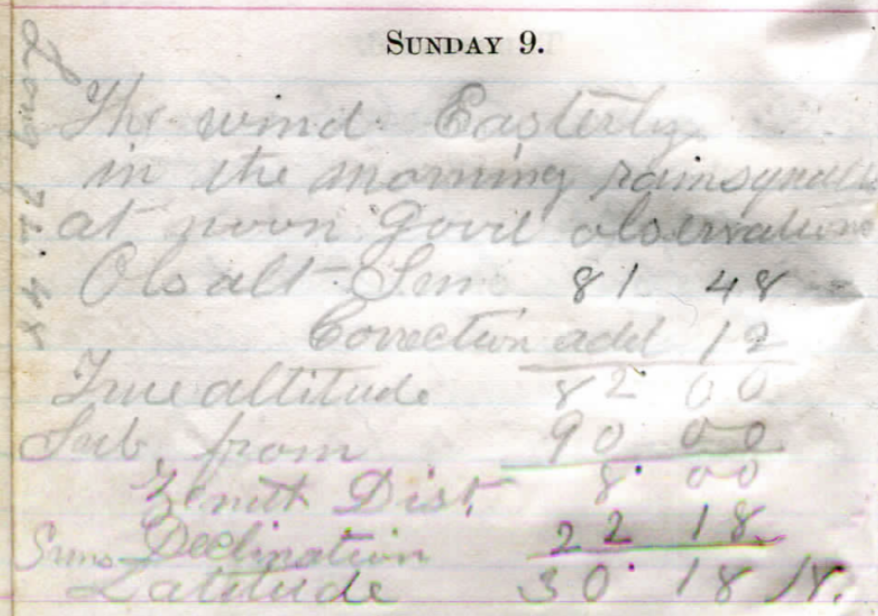 SUNDAY 9.
The wind Easterly
in the morning rainsqualls
at noon Good observations
Obs alt. Sun 81 48
Correction add 12
True altitude 82 00
Sub. from 90 00
Zenith Dist. 8 00
Suns Declination 22 18
Latitude 30 18 N.